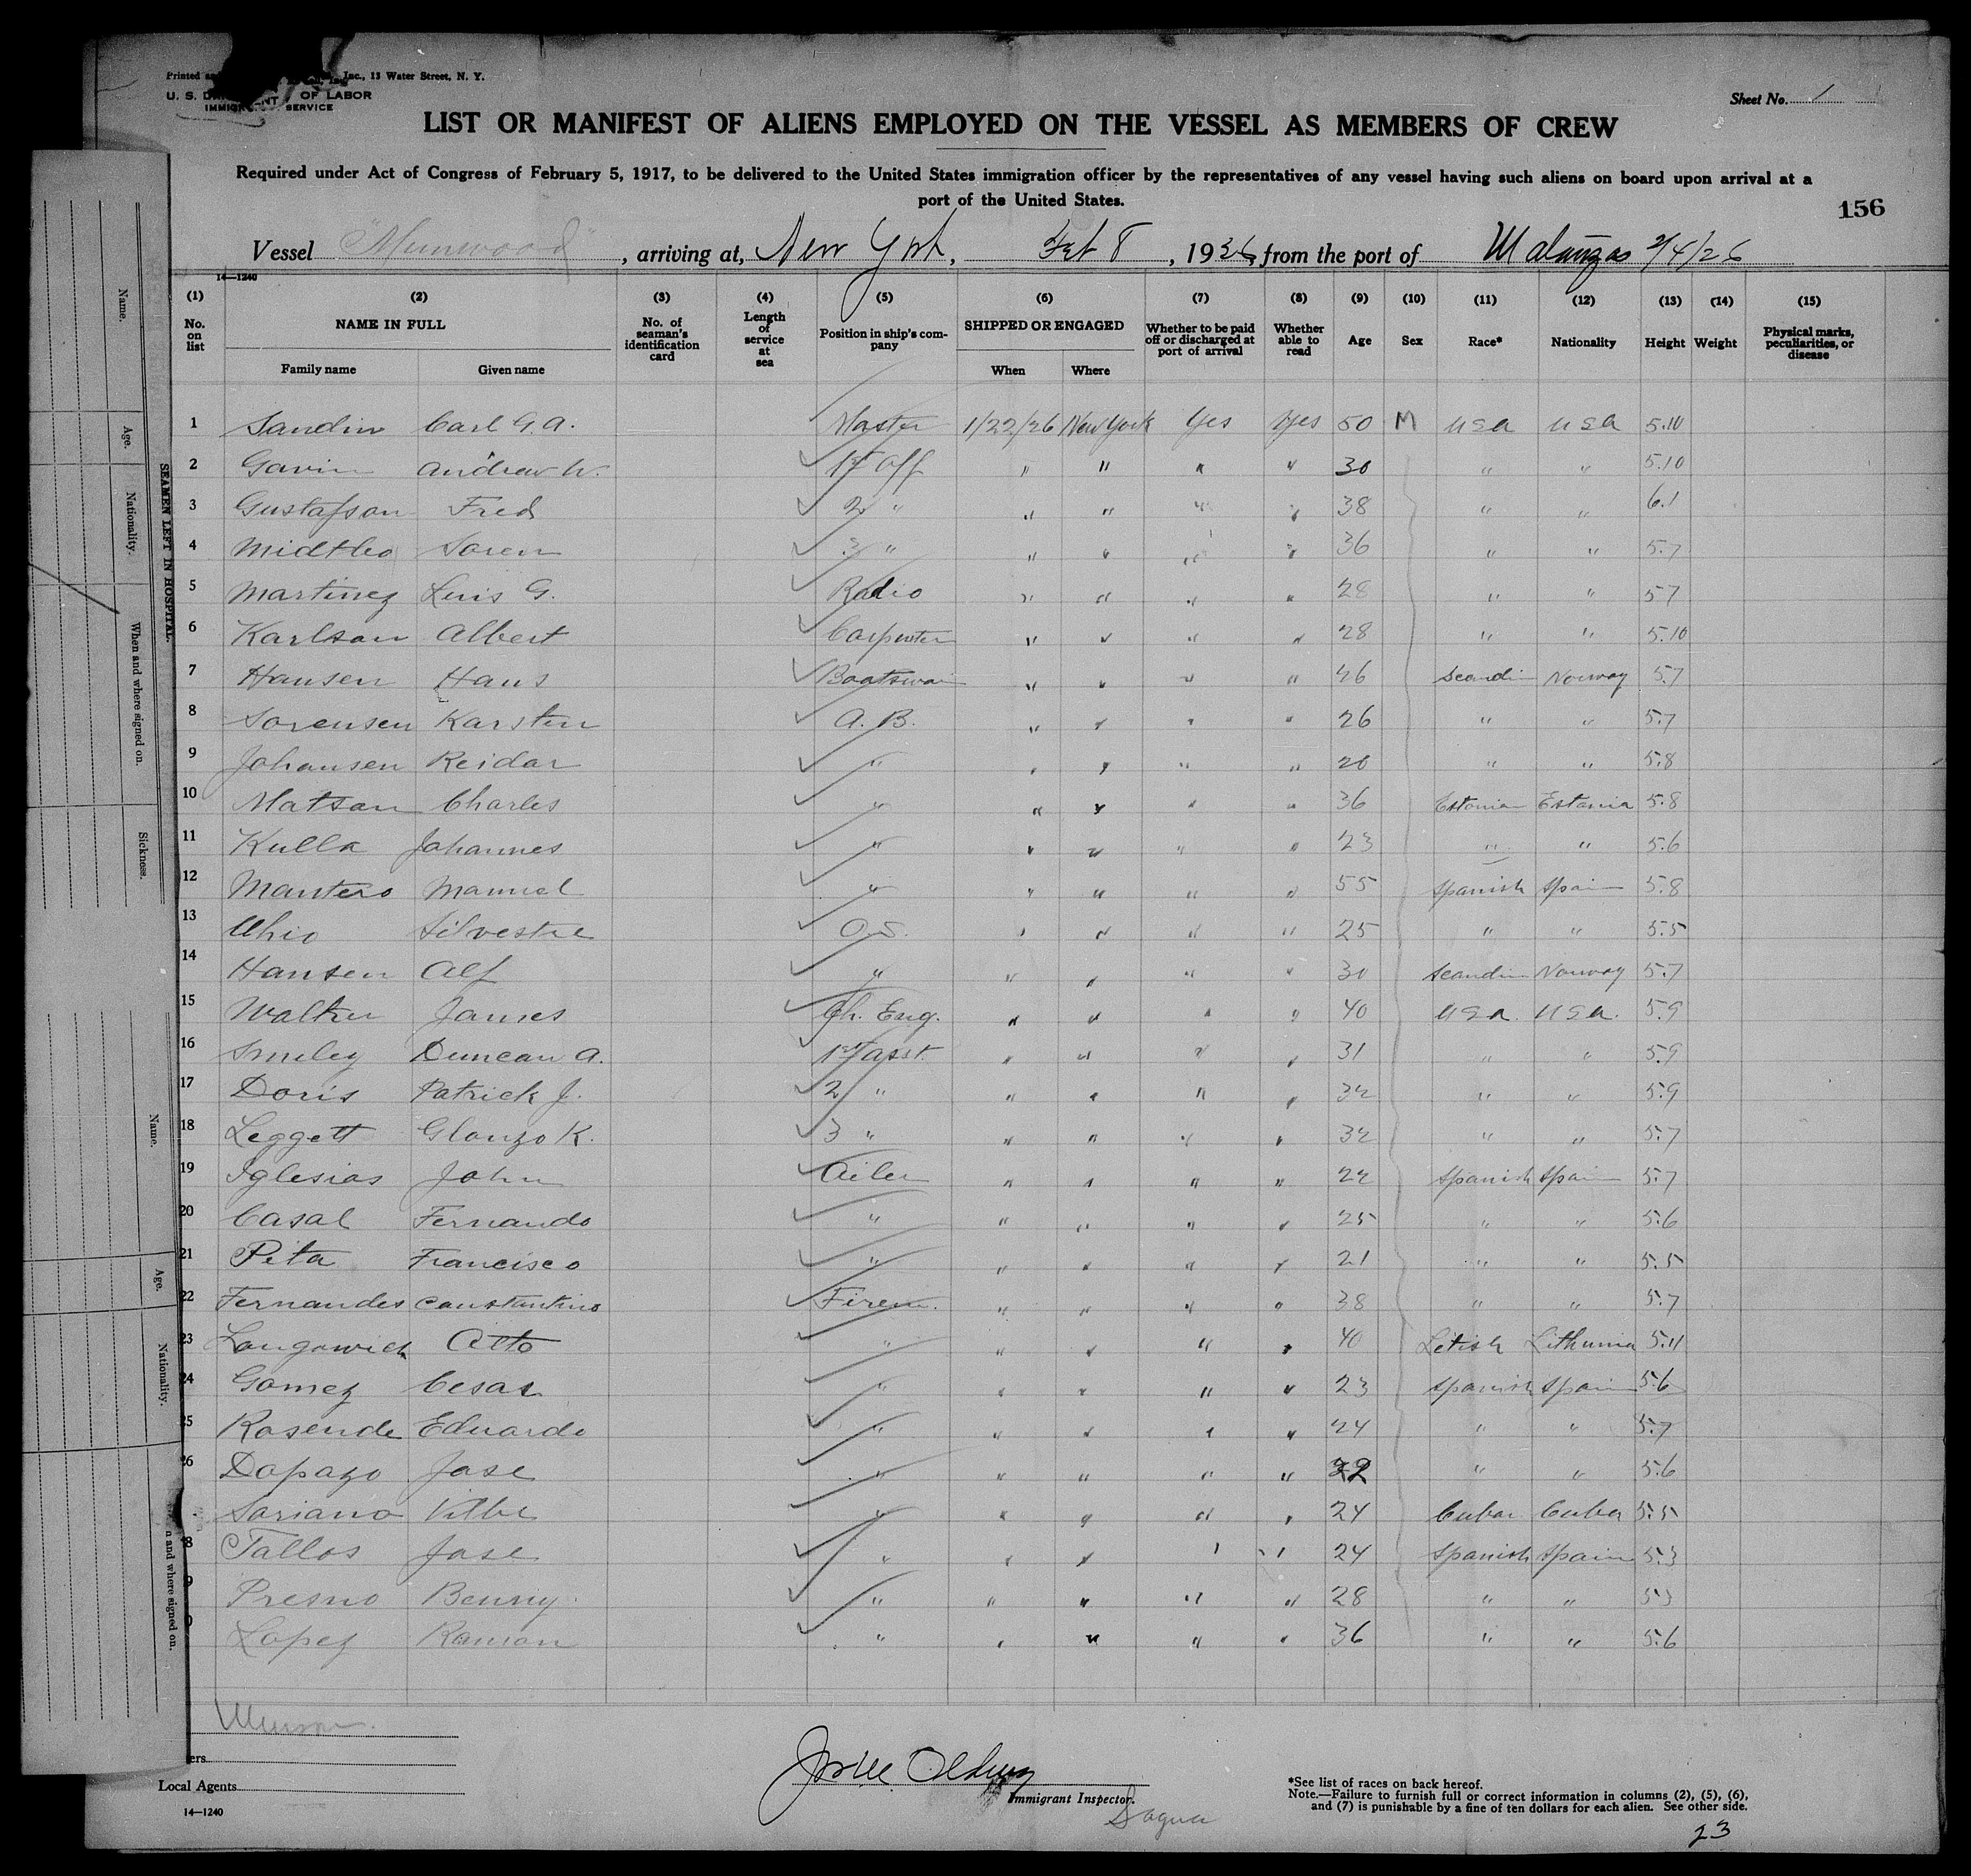 Inc., 13 Water Street, N. Y.
U. S. OF LABOR
SERVICE
Sheet No. 1
LIST OR MANIFEST OF ALIENS EMPLOYED ON THE VESSEL AS MEMBERS OF CREW
Required under Act of Congress of February 5, 1917, to be delivered to the United States immigration officer by the representatives of any vessel having such aliens on board upon arrival at a
port of the United States.
156
Vessel "Munwood", arriving at, New York, Feb 8, 1926, from the port of Matanzas 2/4/26
14—1240
(1) (2) (3) (4) (5) (6) (7) (8) (9) (10) (11) (12) (13) (14) (15)
No. on list NAME IN FULL Family name Given name No. of seaman's identification card Length of service at sea Position in ship's company SHIPPED OR ENGAGED When Where Whether to be paid off or discharged at port of arrival Whether able to read Age Sex Race* Nationality Height Weight Physical marks, peculiarities, or disease
1 Sandin Carl G. A. Master 1/22/26 New York Yes Yes 50 M USA USA 5.10
2 Gavin Andrew W. 1st Off " " " " 30 " " 5.10
3 Gustafson Fred 2 " " " " " 38 " " 6.1
4 Midtbo Soren 3 " " " " " 36 " " 5.7
5 Martinez Luis G. Radio " " " " 28 " " 5.7
6 Karlson Albert Carpenter " " " " 28 " " 5.10
7 Hansen Hans Boatswain " " " " 46 Scandin Norway 5.7
8 Sorensen Karsten A. B. " " " " 26 " " 5.7
9 Johansen Reidar " " " " " 20 " " 5.8
10 Matson Charles " " " " " 36 Estonian Estonia 5.8
11 Kulla Johannes " " " " " 23 " " 5.6
12 Mantero Manuel " " " " " 55 Spanish Spain 5.8
13 Silvestre O.S. " " " " 25 " " 5.5
14 Hansen Alf " " " " " 30 Scandin Norway 5.7
15 Walker James Ch. Eng. " " " " 40 USA. USA. 5.9
16 Smiley Duncan A. 1st asst. " " " " 31 " " 5.9
17 Doris Patrick J. 2 " " " " " 32 " " 5.9
18 Leggett Glonzo K. 3 " " " " " 32 " " 5.7
19 Iglesias John Oiler " " " " 22 Spanish Spain 5.7
20 Casal Fernando " " " " " 25 " " 5.6
21 Pita Francisco " " " " " 21 " " 5.5
22 Fernandes Constantino Firem. " " " " 38 " " 5.7
23 Longowich Otto " " " " " 40 Letish Lithunia 5.11
24 Gomez Cesar " " " " " 23 Spanish Spain 5.6
25 Rosende Eduardo " " " " " 24 " " 5.7
26 Dopazo Jose " " " " " 32 " " 5.6
Soriano " " " " " 24 Cuban Cuba 5.5
8 Tallos Jose " " " " " 24 Spanish Spain 5.3
9 Presno Benny " " " " " 28 " " 5.3
0 Lopez Ramon " " " " " 36 " " 5.6
Munson
ers
Local Agents
14—1240
Immigrant Inspector.
Sagua
*See list of races on back hereof.
Note.—Failure to furnish full or correct information in columns (2), (5), (6),
and (7) is punishable by a fine of ten dollars for each alien. See other side.
23
SEAMEN LEFT IN HOSPITAL.
Name.
Age.
Nationality.
When and where signed on.
Sickness.
Name.
Age.
Nationality.
n and where signed on.